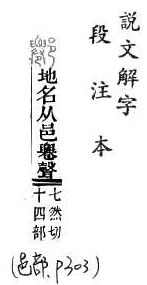 說文解字
段注本
地名从邑䙴聲
七然切
十四部
(邑部, p303)